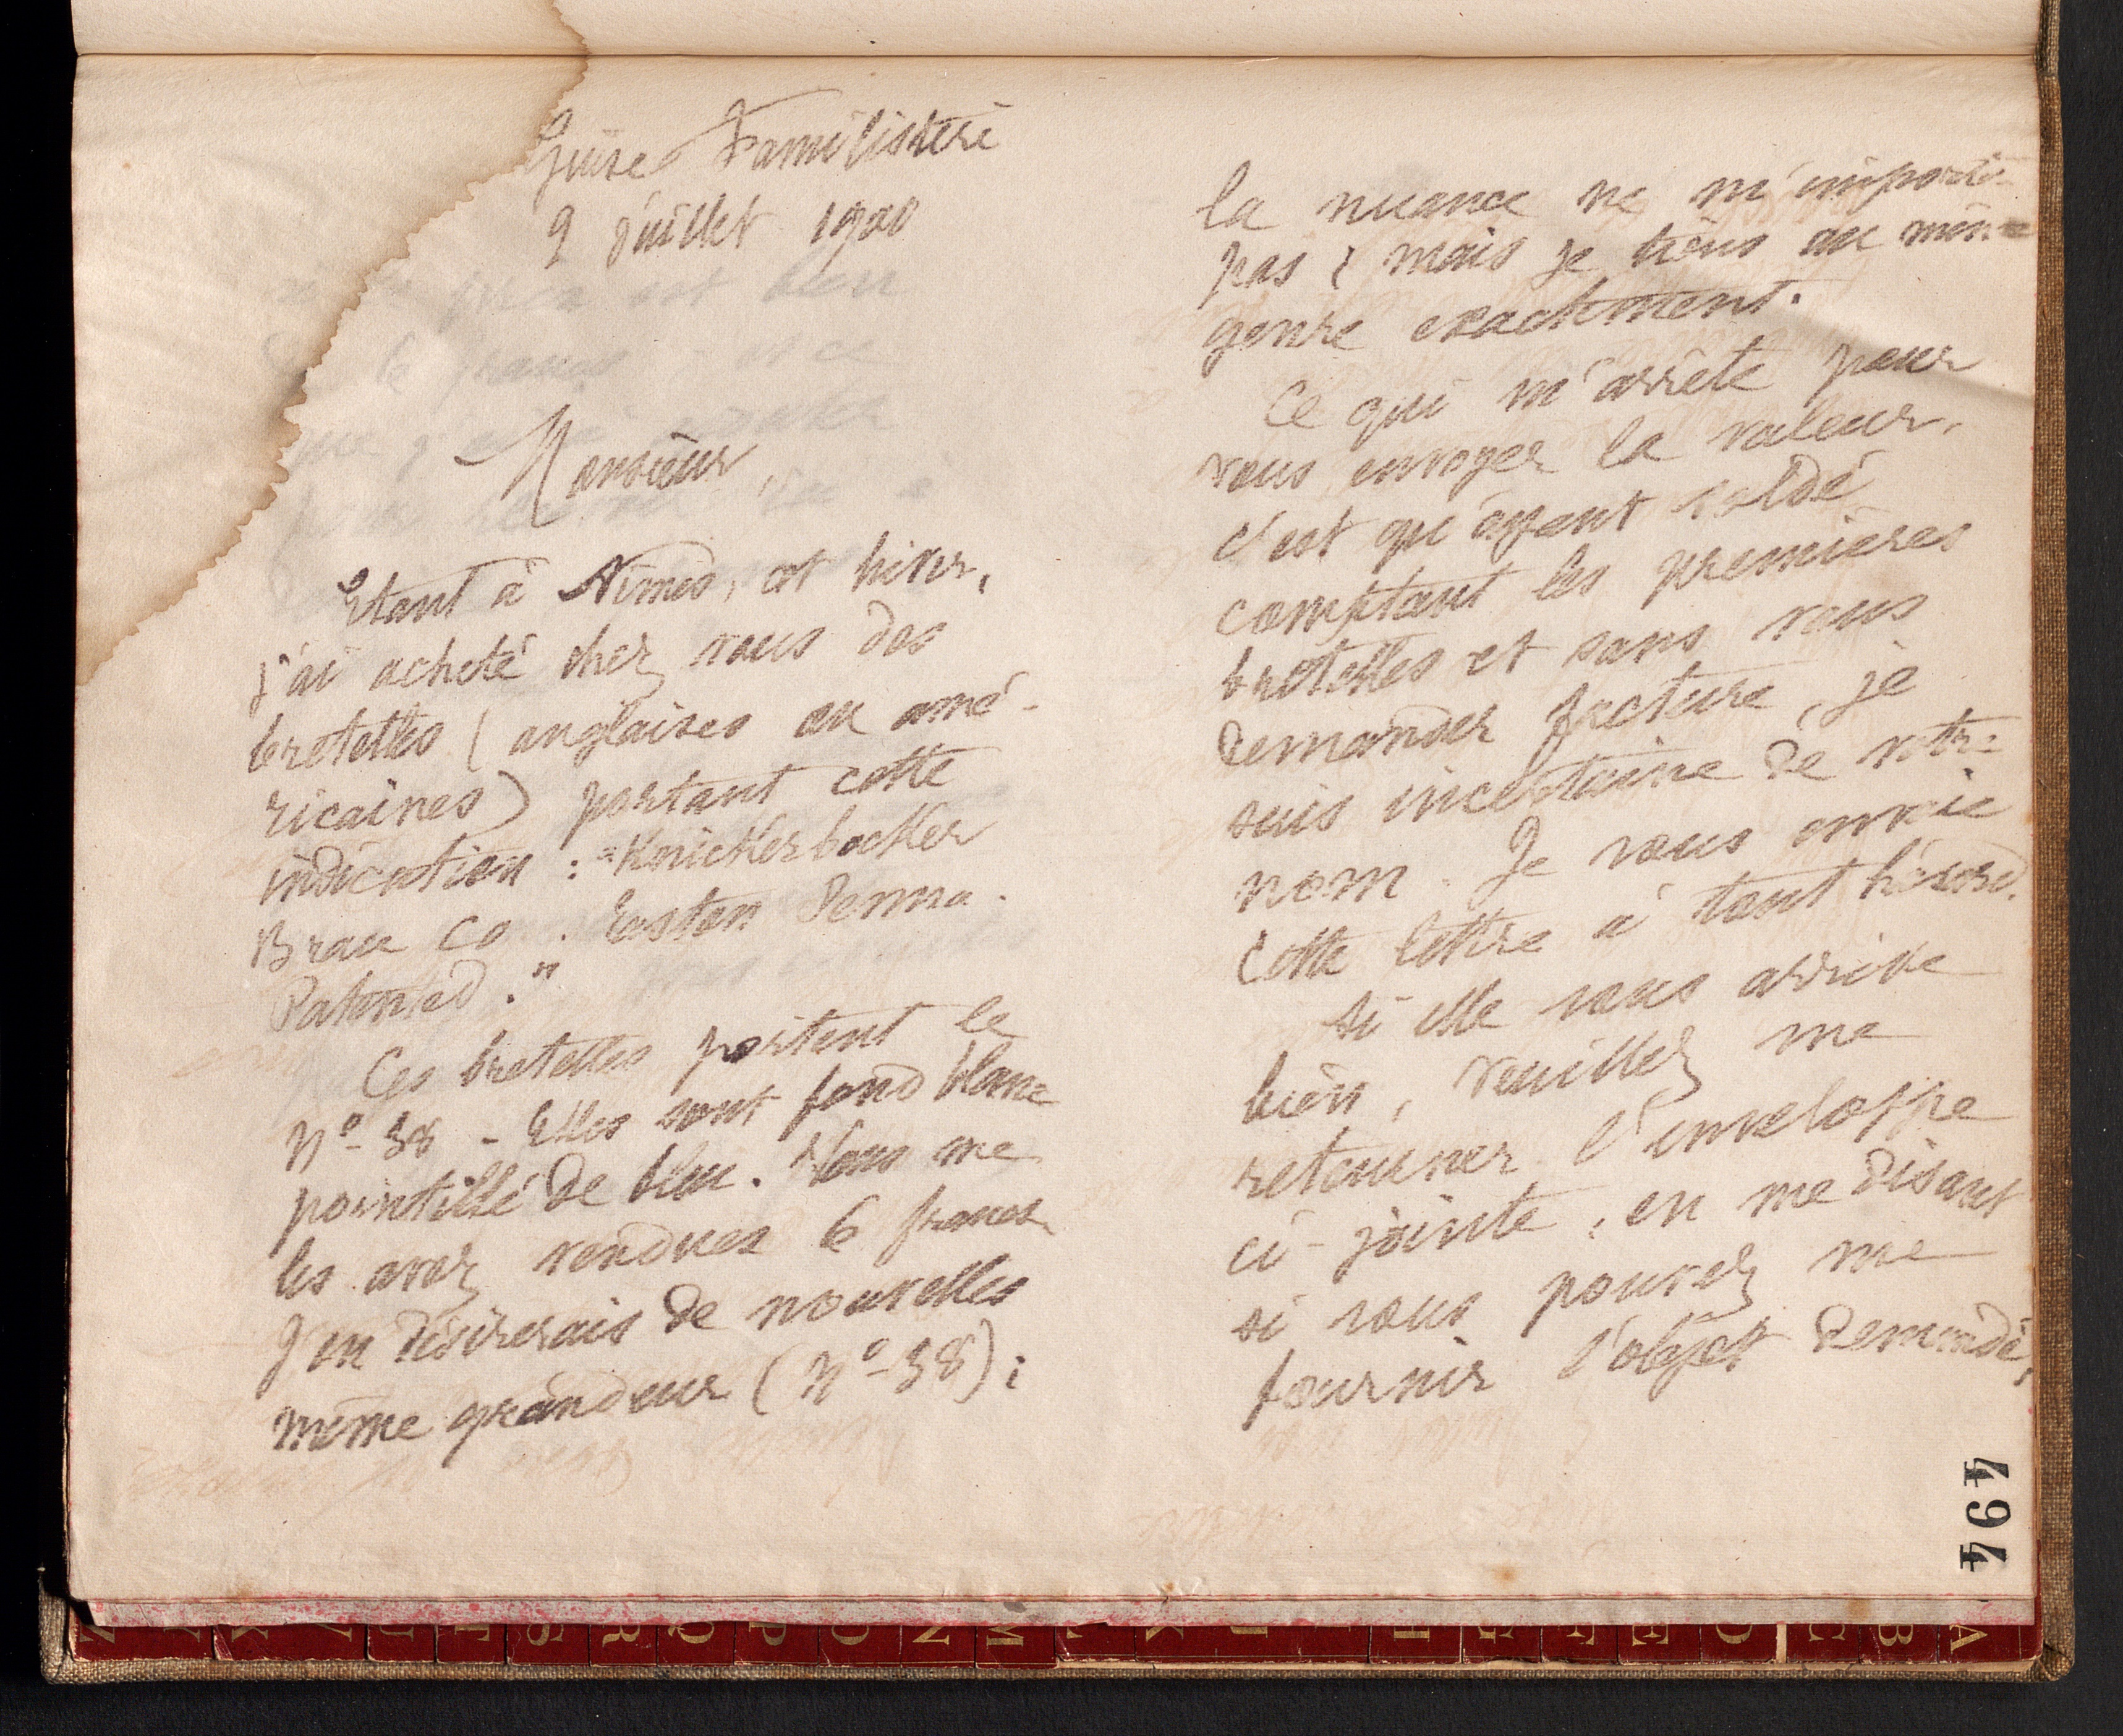 Guise Familistère
9 juillet 1900
Monsieur,
Etant à Nîmes, cet hiver,
j'ai acheté chez vous des
bretelles (anglaises ou amé-
ricaines) portant cette
indication : "Knickerbocker
Brace Co. Easton Penna.
Patented."
Ces bretelles portent le
No 38 - Elles sont fond blanc
pointillé de bleu. Vous me
les avez vendues 6 francs
J'en désirerais de nouvelles
même grandeur (No 38);
la nuance ne m'importe
pas; mais je tiens au même
genre exactement.
Ce qui m'arrête pour
vous envoyer la valeur,
c'est qu'ayant soldé
comptant les premières
bretelles et sans vous
demander facture, je
suis incertaine de votre
nom. Je vous envoie
cette lettre à tout hasard.
Si elle vous arrive
bien, veuillez me
retourner l'enveloppe
ci-jointe, en me disant
si vous pouvez me
fournir l'objet demandé,
494
A
B
C
D
E
F
G
H
J
K
L
M
N
O
P
Q
R
S
T
U
V
X